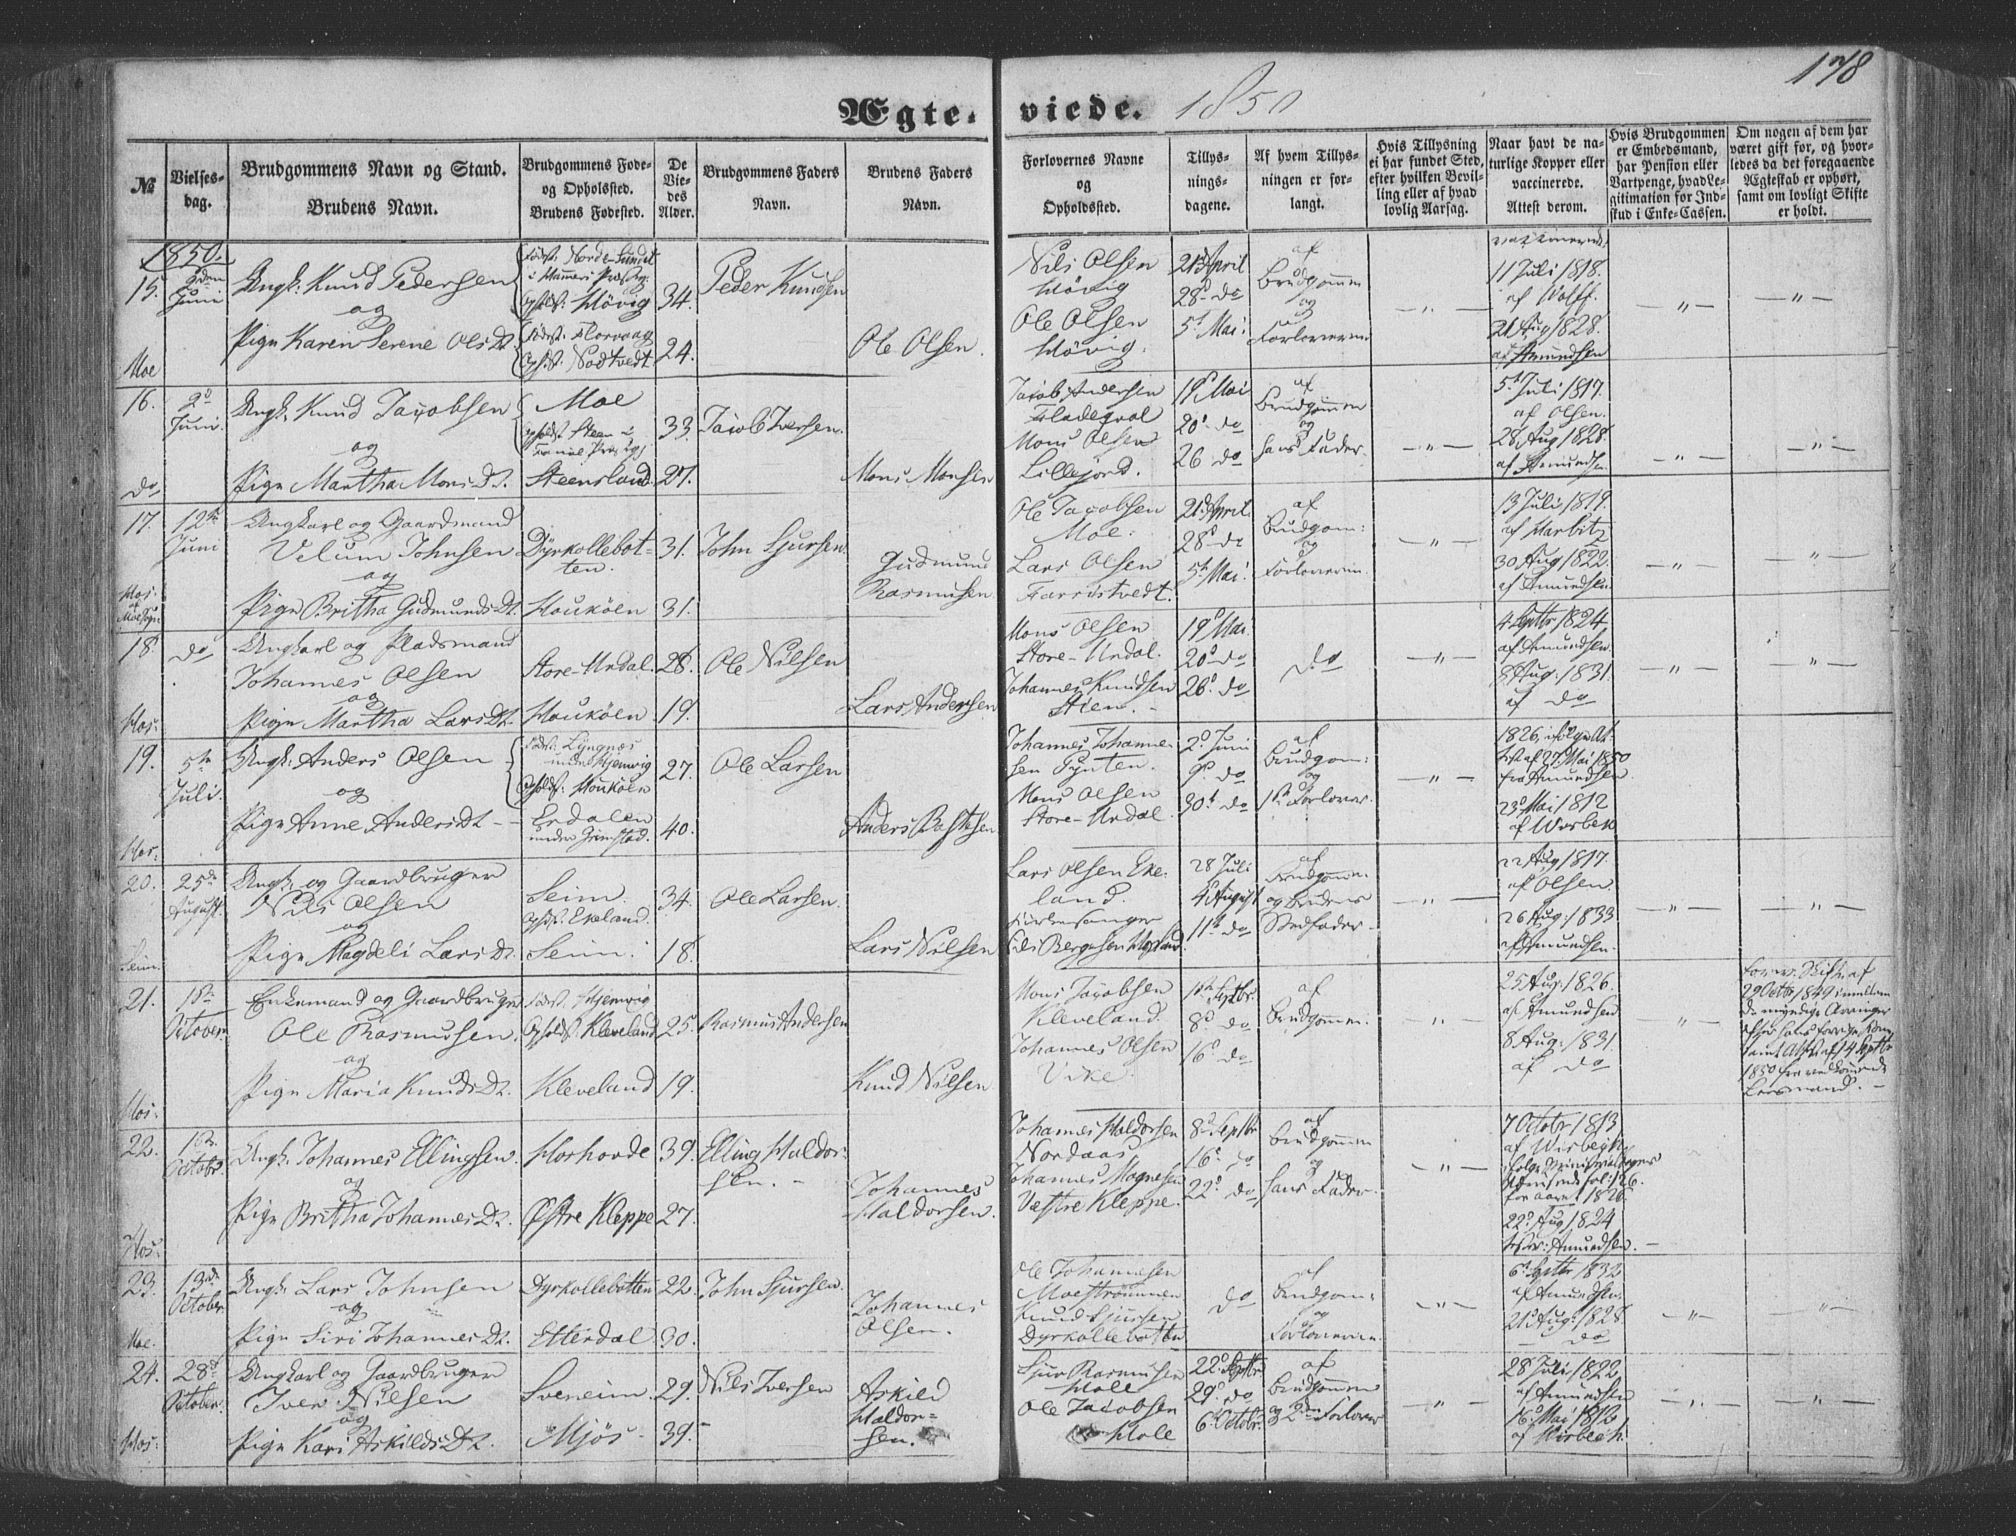 178
Ægte- viede. 1850
№
Vielses-
dag.
Brudgommens Navn og Stand.
Brudens Navn.
Brudgommens Føde-
og Opholdssted.
Brudens Fødested.
De
Vie-
des
Alder.
Brudgommens Faders
Navn.
Brudens Faders
Navn.
Forlovernes Navne
og
Opholdssted.
Tillys-
nings-
dagene.
Af hvem Tillys-
ningen er for-
langt.
Hvis Tillysning
ei har fundet Sted,
efter hvilken Bevil-
ling eller af hvad
lovlig Aarsag.
Naar havt de na-
turlige Kopper eller
vaccinerede.
Attest derom.
Hvis Brudgommen
er Embedsmand,
har Pension eller
Vartpenge, hvad Le-
gitimation for Ind-
skud i Enke-Cassen.
Om nogen af dem har
været gift for, og hvor-
ledes da det foregaaende
Ægteskab er ophørt,
samt om lovligt Skifte
er holdt.
1850.
15.
Juni
Moe
Ungk: Knud Pedersen
og
Pige Karen Serene Ols Dt.
Ophold: Høvig
Fødst: Florvaag
Ophst: Nodtvedt
34.
24.
Peder Knudsen
Ole Olsen.
Nils Olsen
Høvig
Ole Olsen
Høvig.
21d April
28d do
5t Mai.
af
Brudgommen
og
Forloverne
11 Juli 1818.
af Wolff.
21 Aug 1828.
af Amundsen
16.
2d
Juni.
do
Ungk. Knud Jacobsen
og
Pige Martha Mons Dt.
Moe
Opholdst. Steen i
Steensland.
33.
27.
Jacob Iversen.
Mons Monsen
Jacob Andersen
Mons Olsen
Lillejord.
19d Mai
20d do
26 do
af
Brudgommen
og
hans Fader.
5t Juli 1817.
af Olsen.
28 Aug 1828.
af Amundsen
17.
12te
Juni
Hos.
Ungkarl og Gaardmand
Velum Johnsen
og
Pige Britha Gudmunds Dt.
Dyrkollebot-
ten.
Houkøen
31.
31.
John Sjursen.
Gudmund
Rasmusen.
Ole Jacobsen
Moe.
Lars Olsen
Farristvedt.
21d April.
28d do
5t Mai.
af
Brudgom:
og
Forloveren.
13 Juli 1819.
af Marbitz
30 Aug 1822.
af Amundsen
18.
do
Hos.
Ungkarl og Pladsmand
Johannes Olsen
og
Pige Martha Lars Dt.
Store-Urdal.
Houkøen
28.
19.
Ole Nilsen
Lars Andersen
Mons Olsen
Store-Urdal.
Johannes Knudsen
19d Mai
20d do
26d do
do
4 Septbr 1824
af Amundsen
8 Aug: 1831.
af do
19.
5te
Juli.
Hos.
Ungk. Anders Olsen
og
Pige Anne Anders Dt
Fødst: Lyngnæs
under Hjemvig
Opholdst: Houkøen
Erdalen
under Grimstad.
27.
40.
Ole Larsen
Anders Bastesen
Johannes Johanne-
sen Tynten.
Mons Olsen
Store-Urdal.
2d Juni
9d do
30t do
af
Brudgom:
og
1ste Forlover.
1826, ifølge At-
test af 27 Mai 1850
fra Amundsen
23d Mai 1812
af Wisbek
20.
25de
August.
Seim.
Ungk. og Gaardbruger
Nils Olsen
og
Pige Magdeli Lars Dt.
Seim.
Opholdst. Ekeland.
Seim.
34.
18.
Ole Larsen.
Lars Nilsen
Lars Olsen Eke-
land.
Kirkesanger
28 Juli
4d August
11te do
af
Brudgommen
og Brudens
Stedfader.
22 Aug 1817.
af Olsen.
26 Aug: 1833.
af Amundsen.
21.
Octover
Hos.
Enkemand og Gaardbruger
Ole Rasmusen.
og
Pige Maria Knuds Dt.
Fødst. Hjemvig
Opholdst. Kleveland
Kleveland
25.
19.
Rasmus Andersen
Knud Nilsen
Mons Jacobsen
Kleveland.
Johannes Olsen
Vike.
1ste Septbr.
8d do
16d do
af
Brudgommen.
25 Aug: 1826.
af Amundsen
8 Aug: 1831.
af do
Skifte af
29 Octbr 1849 imellem
de myndige Arvinger
efter hans forrige Kone
samt Attest af 14 Septbr
1850 fra vedkommende
Lensmand.
22.
Octobr.
Hos.
Ungk. Johannes Ellingsen.
og
Pige Britha Johannes Dt.
Hoshovde
Østre Kleppe
39.
27.
Elling Haldor-
sen.
Johannes
Haldorsen.
Johannes Haldorsen
Nordaas
Johannes Magnesen
Vestre Kleppe.
8d Septbr
16d do
22d do
af
Brudgommen
og
hans Fader.
7 Octobr 1813
af Wisbech
for aaret 1826.
22d Aug 1824
Amundsen.
23.
13de
October
Moe.
Ungk. Lars Johnsen
og
Pige Siri Johannes Dt.
Dyrkollebotten
Etterdal
22.
30.
John Sjursen.
Johannes
Olsen.
Ole Johannesen
Moestrømmen
Knud Sjursen
Dyrkollebotten
do
af
Brudgom:
og
Forloveren.
6t Septbr 1832
af Amundsen.
21d Aug: 1828.
do
24.
28d
October.
Hos:
Ungkarl og Gaardbruger
Iver Nilsen
og
Pige Kari Askilds Dt.
Sveneim.
Mjøs
29.
39.
Nils Iversen
Askild
Haldor-
sen.
Sjur Rasmusen
Hole
Ole Jacobsen
Hole
22d Septbr
29d do
6te Octobr.
af
Brudgommen
og 2den Forlover
28 Juli 1822
af Amundsen
16d Mai 1812
af Wisbech.